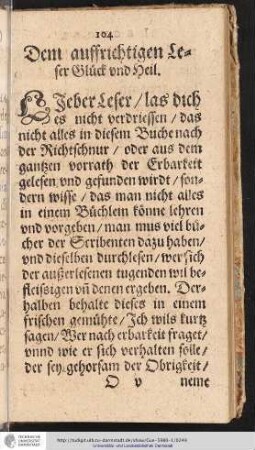 104
Dem auffrichtigen Le-
ser Glück vnd Heil.
LJeber Leser / las dich
es nicht verdriessen / das
nicht alles in diesem Buche nach
der Richtschnur / oder aus dem
gantzen vorrath der Erbarkeit
gelesen vnd gefunden wirdt / son-
dern wisse / das man nicht alles
in einem Büchlein könne lehren
vnd vorgeben / man mus viel bü-
cher der Scribenten dazu haben /
vnd dieselben durchlesen / wer sich
der außerlesenen tugenden wil be-
fleissigen vñ denen ergeben. Der-
halben behalte dieses in einem
frischen gemühte / Jch wils kurtz
sagen / Wer nach erbarkeit fraget /
vnnd wie er sich verhalten solle /
der sey gehorsam der Obrigkeit /
O v neme